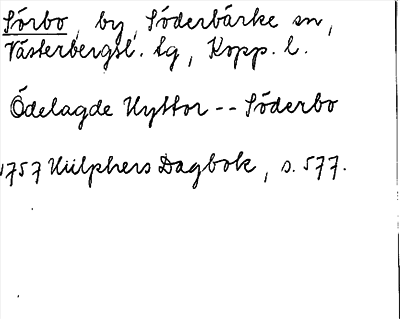 Sörbo, by, Söderbärke sn,
Västerbergsl. tg, Kopp. l.
Ödelagde Hyttor -- Söderbo
1757 Hülphers Dagbok, s. 577.